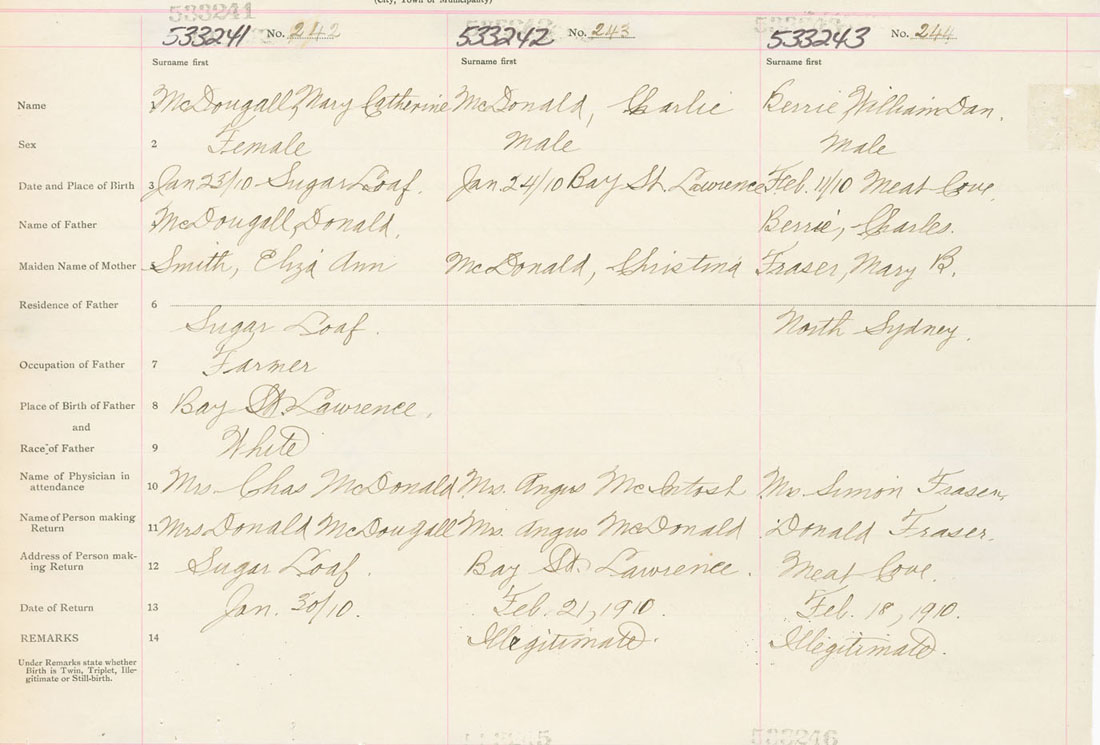 (City, Town or Municipality)
533241 533242 533243
533241 No. 242 533242 No. 243 533243 No. 244
Surname first Surname first Surname first
Name 1 McDougall, Mary Catherine McDonald, Charlie Berrie, William Dan.
Sex 2 Female Male Male
Date and Place of Birth 3 Jan 23/10 Sugar Loaf. Jan. 24/10 Bay St. Lawrence Feb. 11/10 Meat Cove.
Name of Father McDougall, Donald. Berrie, Charles.
Maiden Name of Mother 5 Smith, Eliza Ann McDonald, Christina Fraser, Mary B.
Residence of Father 6
Sugar Loaf. North Sydney.
Occupation of Father 7 Farmer
Place of Birth of Father 8 Bay St. Lawrence.
and
Race of Father 9 White
Name of Physician in
attendance 10 Mrs. Chas McDonald Mrs. Angus McIntosh Mrs Simon Fraser,
Name of Person making
Return 11 Mrs. Donald McDougall Mrs. Angus McDonald Donald Fraser.
Address of Person mak-
ing Return 12 Sugar Loaf. Bay St. Lawrence. Meat Cove.
Date of Return 13 Jan. 30/10. Feb. 21, 1910. Feb. 18, 1910.
REMARKS 14 Illegitimate. Illegitimate.
Under Remarks state whether
Birth is Twin, Triplet, Ille-
gitimate or Still-birth.
533246